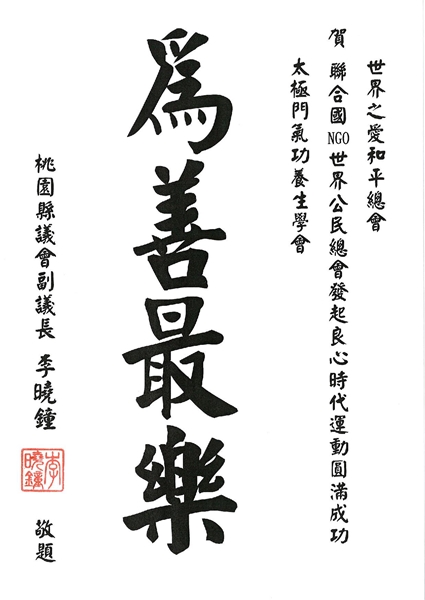 世界之愛和平總會
賀 聯合國NGO世界公民總會發起良心時代運動圓滿成功
太極門氣功養生學會
為善最樂
桃園縣議會副議長 李曉鐘 敬題
李曉鐘